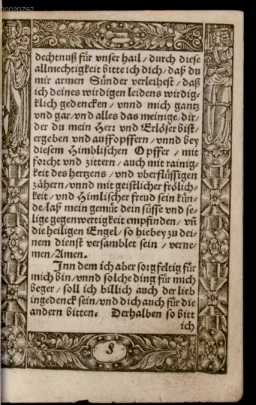 dechtnuß für vnser hail / durch diese
allmechtigkeit bitte ich dich / daß du
mir armen Sünder verleihest / daß
ich deines wirdigen leidens wirdig-
klich gedencken / vnnd mich gantz
vnd gar vnd alles das meinige / dir
der du mein Herr vnd Erlöser bist /
ergeben vnd auffopffern / vnnd bey
diesem Himblischen Opffer / mit
forcht vnd zittern / auch mit rainig-
keit des hertzens / vnd vberflüssigen
zähern / vnnd mit geistlicher frölich-
keit / vnd Himlischer freud sein kün-
de / laß mein gemüt dein süsse vnd se-
lige gegenwertigkeit empfinden / vn̄
die heiligen Engel / so hiebey zu dei-
nem dienst versamblet sein / verne-
men / Amen.
Inn dem ich aber sorgfeltig für
mich bin / vnnd solche ding für mich
beger / soll ich billich auch der lieb
ingedenck sein / vnd dich auch für die
andern bitten. Derhalben so bitt
ich